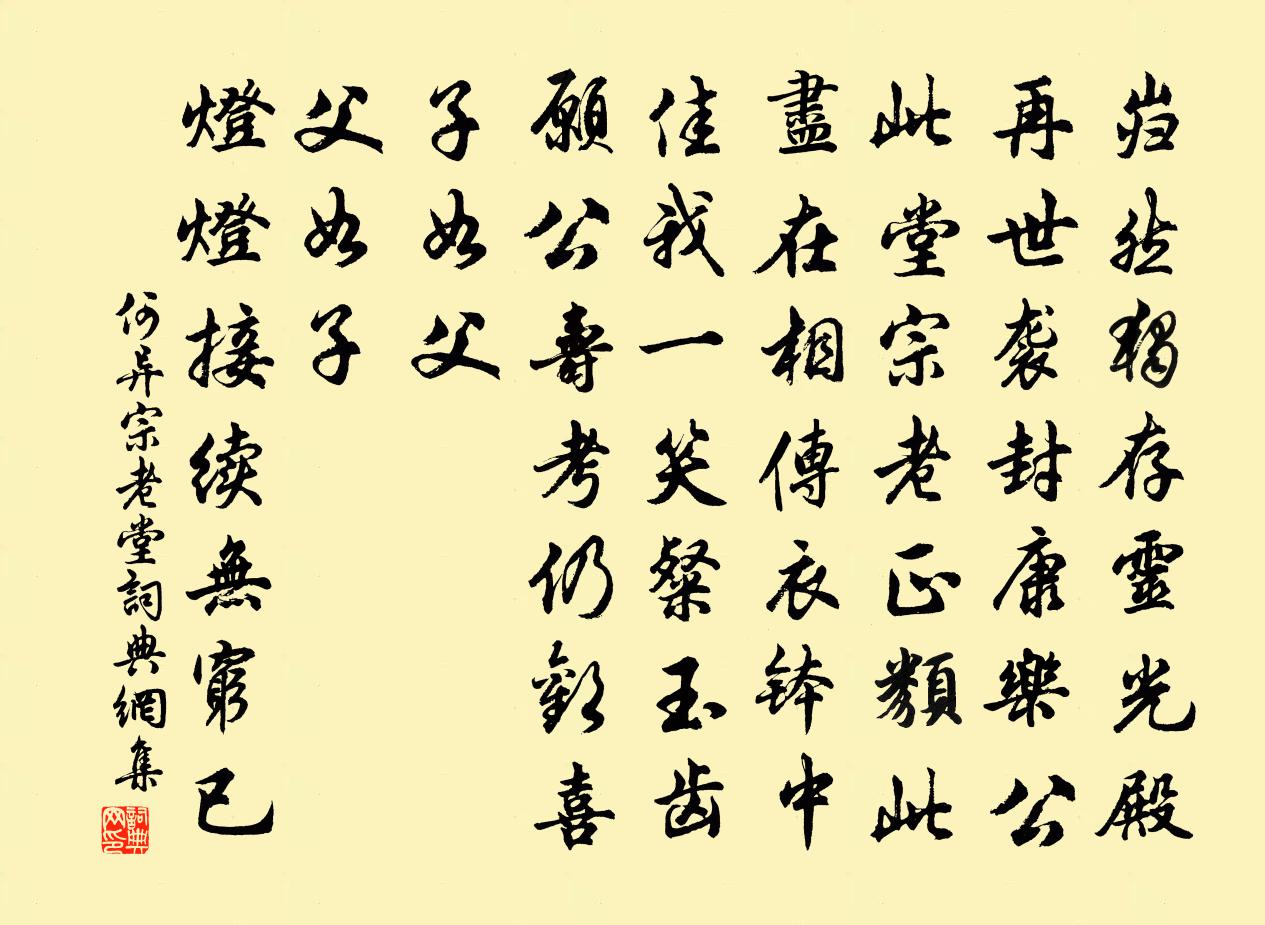 岿然獨存靈光殿
再世袭封康樂公
此堂宗老正類此
盡在相傳衣鉢中
佳我一笑粲玉齿
願公壽考仍歡喜
子如父
父如子
燈燈接续無窮已
何异宗老堂詞典網集
詞典网印